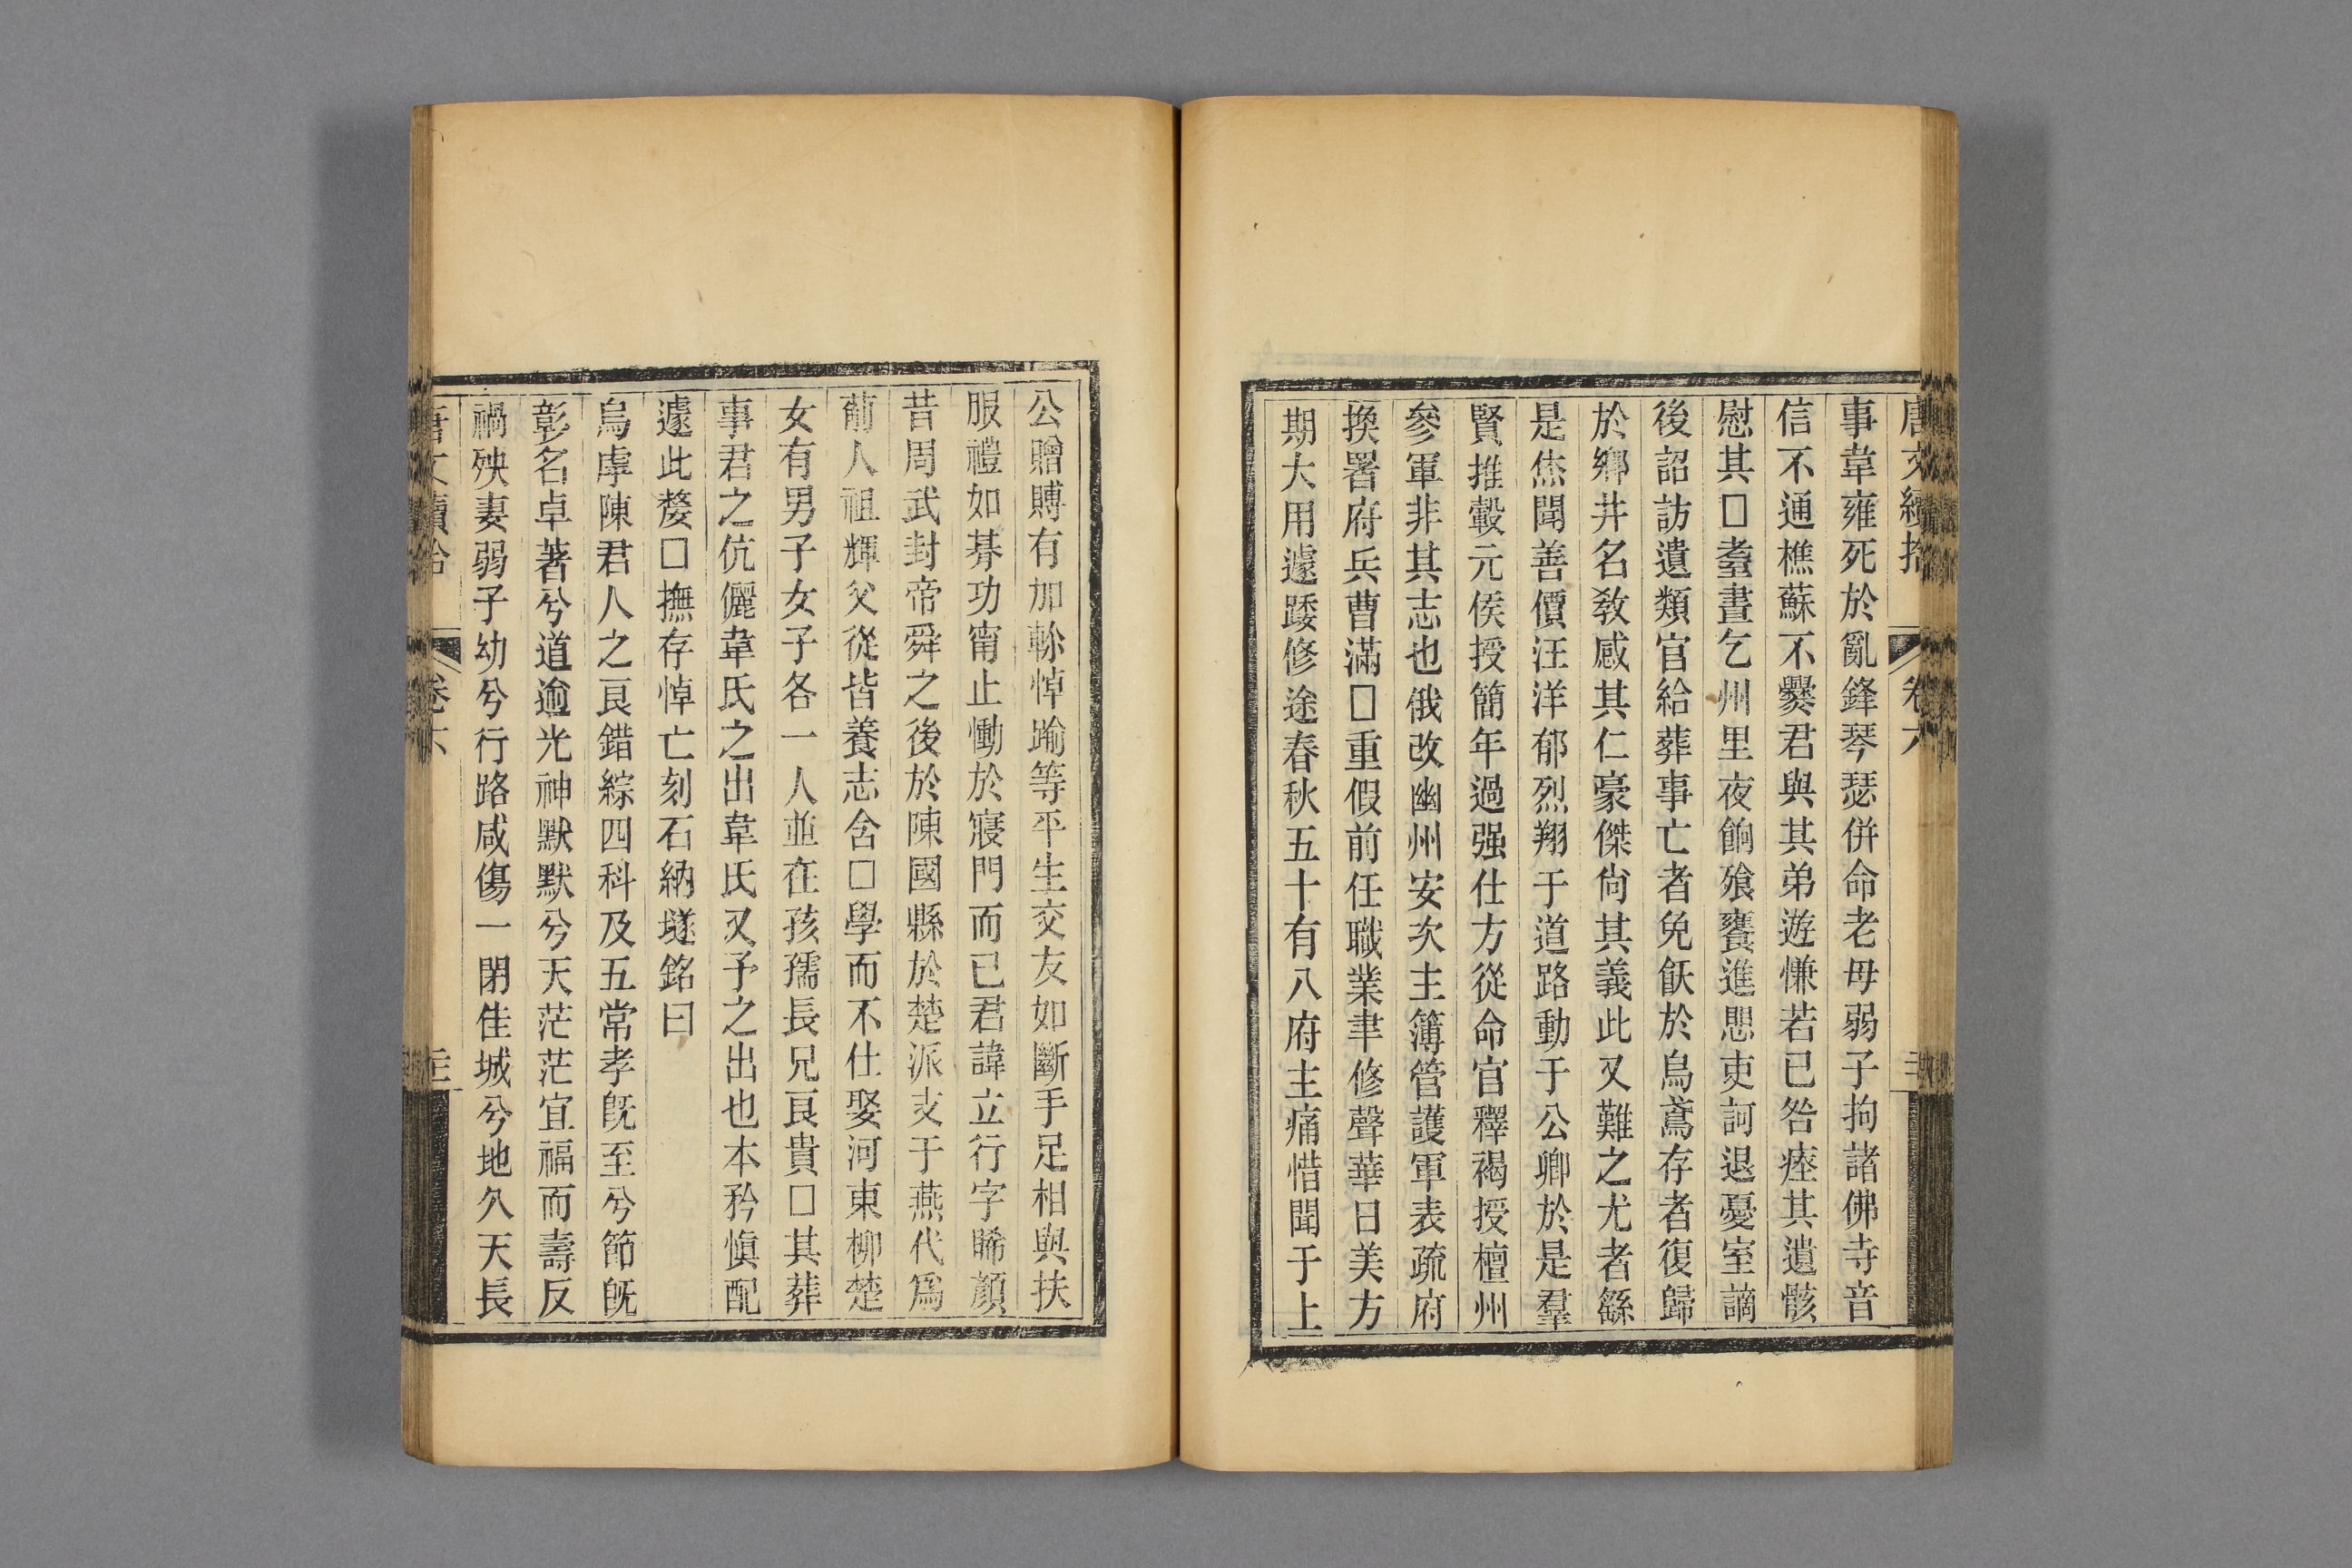 唐文續拾 卷六
事韋雍死於亂鋒琴瑟併命老母弱子拘諸佛寺音
信不通樵蘇不爨君與其弟遊慊若已咎瘞其遺骸
慰其□耋晝乞州里夜餉飧饔進思吏訶退憂室謫
後詔訪遺類官給葬事亡者免飫於烏鳶存者復歸
於鄉井名教感其仁豪傑尙其義此又難之尤者繇
是休聞善價汪洋郁烈翔于道路動于公卿於是羣
賢推轂元侯授簡年過强仕方從命官釋褐授檀州
參軍非其志也俄改幽州安次主簿管護軍表疏府
換署府兵曹滿□重假前任職業聿修聲華日美方
期大用遽踒修途春秋五十有八府主痛惜聞于上
公贈賻有加軫悼踰等平生交友如斷手足相與扶
服禮如朞功甯止慟於寢門而已君諱立行字睎顏
昔周武封帝舜之後於陳國縣於楚派支于燕代爲
前人祖輝父從皆養志含□學而不仕娶河東柳楚
女有男子女子各一人並在孩孺長兄良貴□其葬
事君之伉儷韋氏之出韋氏又予之出也本矜愼配
遽此嫠□撫存悼亡刻石納墜銘曰
烏虖陳君人之良錯綜四科及五常孝旣至兮節旣
彰名卓著兮道逾光神默默兮天茫茫宜福而壽反
禍殃妻弱子幼兮行路咸傷一閉佳城兮地久天長
唐文續拾 卷六